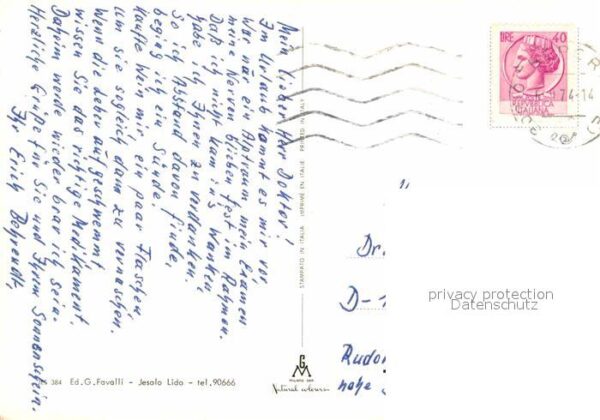 Mein lieber Herr Doktor!
Im Urlaub kommt es mir vor,
War nur ein Alptraum mein Examen
meine Nerven blieben fest im Rahmen.
Daß ich nicht kam in's Wanken
habe ich Ihnen zu verdanken.
So ich Abstand davon finde,
begieng ich ein Sünde.
Kaufte bei mir ein paar Flaschen
um sie sogleich dann zu vernaschen.
Wenn die Leber aufgeschwemmt
wissen Sie das richtige Medikament.
Daheim werde wieder brav ich sein.
Herzliche Grüße für Sie und Ihrem Sonnenschein.
Ihr Erich Behrendt,
384 Ed. G. Favalli - Jesolo Lido - tel. 90666
STAMPATO IN ITALIA IMPRIMÉ EN ITALIE PRINTED IN ITALY
GM
MILANO
Natural colours
LIRE 40
REPUBBLICA
ITALIANA
74-14
Dr.
D-
Rudo
nahe
privacy protection
Datenschutz